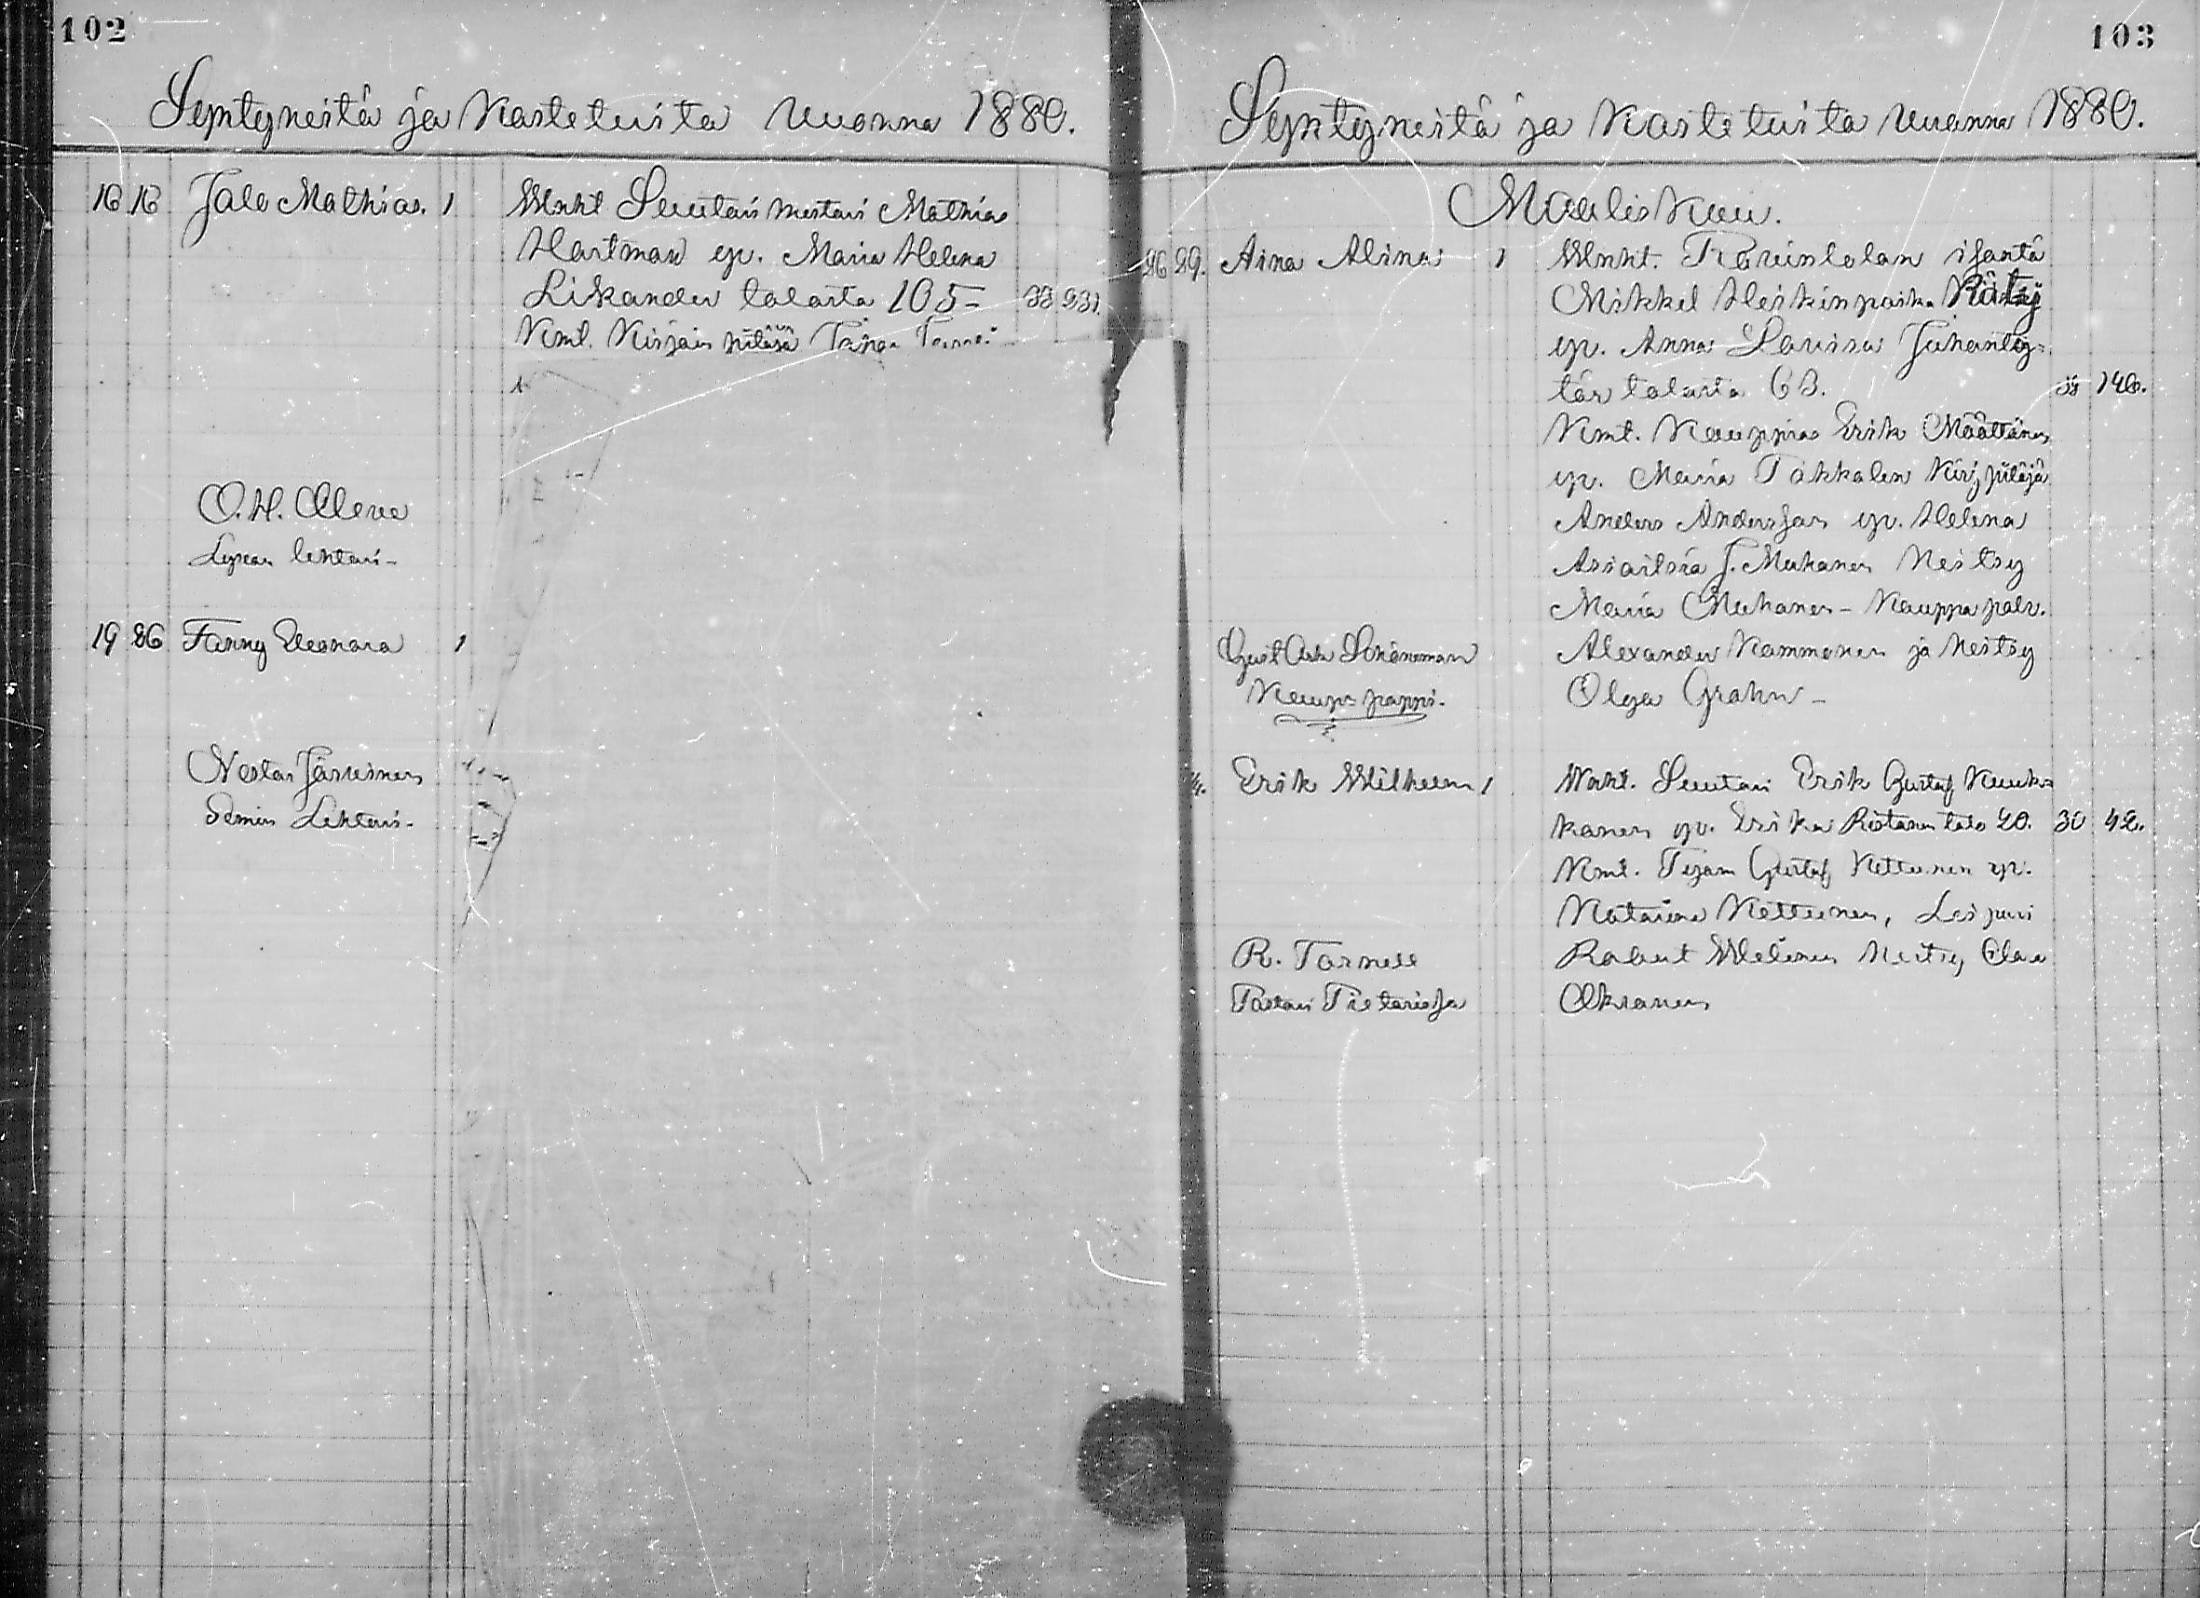 102
Syntyneitä ja Kastetuita Vuonna 1880.
16 16 Jalo Mathias. 1
Wnht Suutari mestari Mathias
Hartman vp. Maria Helena
Likander talosta 105- 33 231.
Kmt. Kirjan pitäjä
O. H. Cleve
Lysean lehtori-
19 26 Fanny Eleonora 1
Nestor Järvinen
Semin Lehtori-
103
Syntyneitä ja Kastetuita Vuonna 1880.
Maalis Kuu.
26 29. Aina Alina 1
Wnht. Ravintolan isäntä
Mikkel Heikinpoika Räty
vp. Anna Lovisa Juhanty-
tär talosta 63. 38 146.
Kmt. Kauppias Erik Määttänen
vp. Maria Tokkolen Kirj pitäjä
Anders Andersson vp. Helena
J. Muhonen Neitsy
Maria Muhonen - Kauppa palv.
Alexander Kammonen ja Neitsy
Olga Grahn -
Gust Schöneman
Kaup: pappi.
Erik Wilhelm 1
Wnht. Suutari Erik Gustaf Kuuk-
kanen vp. Erika Ristanen talo 20. 30 42.
Kmt. Gustaf Kettunen vp.
Katarina Kettunen, Leipuri
Robert Neitsy
Oksanen
R. Tornell
Pastori Pietarissa